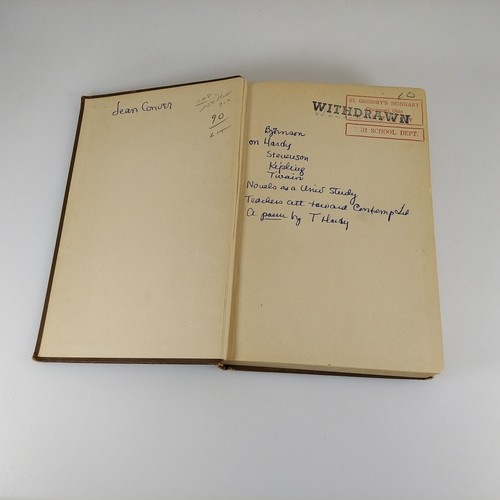 Jean Conver
90
10
WITHDRAWN
ST. GREGORY'S SEMINARY
HI SCHOOL DEPT.
Björnson
on Hardy
Stevenson
Kipling
Twain
Novels as a Univ Study
Teachers att toward Contemp
A poem by T Hardy